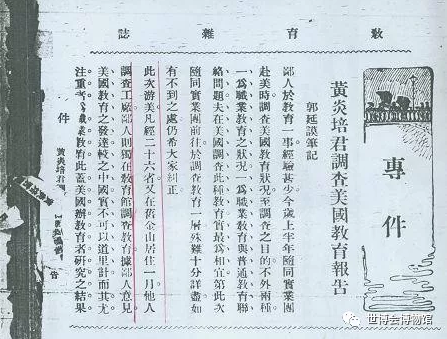 教育雜誌
專件
黃炎培君調查美國教育報告
郭延謨筆記
鄙人於教育一事經驗甚少今歲上半年隨同實業團
赴美時調查美國教育狀況至調查之目的不外兩種
一為職業教育之狀況一為職業教育與普通教育聯
絡問題夫在美國調查此種教育實最為相宜第此次
隨同實業團前往於調查教育一層殊難十分詳盡如
有不到之處仍希大家糾正
此次游美凡經二十六省又在舊金山居住一月他人
調查工廠鄙人則獨在教育館調查教育據鄙人意見
美國教育之發達較之中國實不可以道里計而其尤
注重者職業教育此蓋美國辦教育者研究之結果
件
黃炎培君
告
世博会博物馆